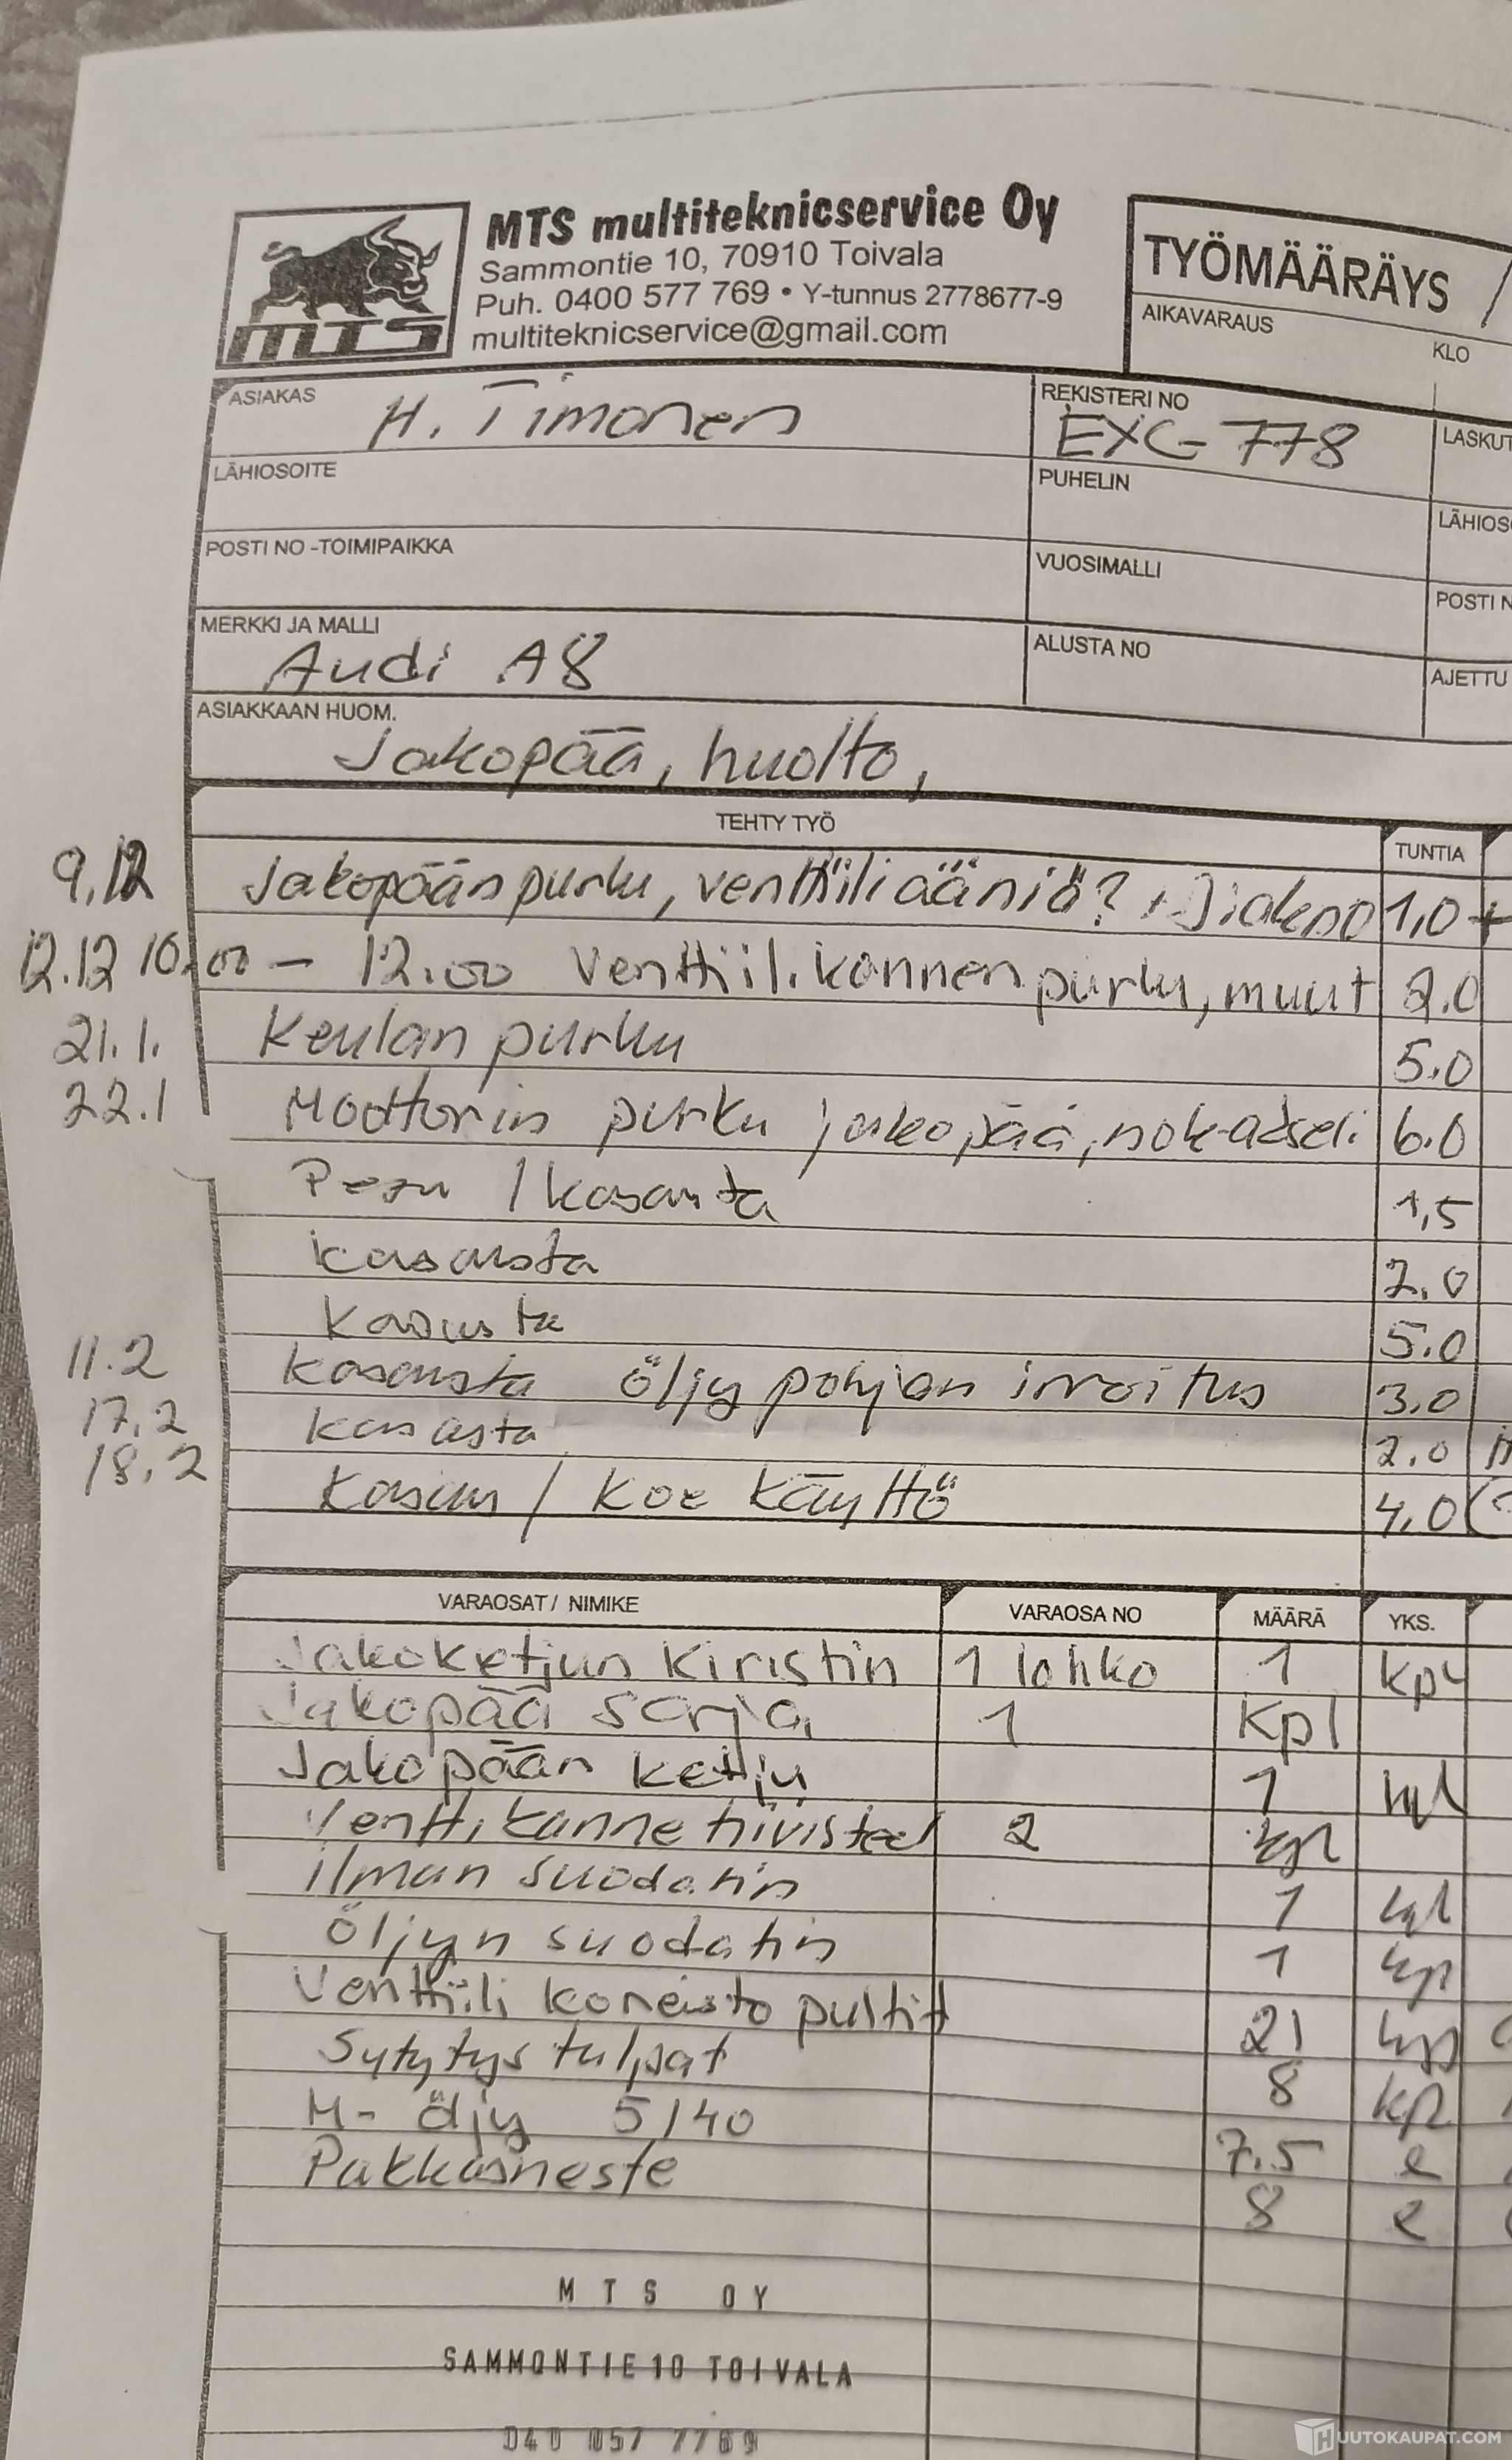 MTS multiteknicservice Oy
Sammontie 10, 70910 Toivala
Puh. 0400 577 769 • Y-tunnus 2778677-9
multiteknicservice@gmail.com
MTS
TYÖMÄÄRÄYS
AIKAVARAUS
KLO
ASIAKAS H. Timonen
REKISTERI NO EXG-778
LASKUT
LÄHIOSOITE
PUHELIN
LÄHIOS
POSTI NO -TOIMIPAIKKA
VUOSIMALLI
POSTI N
MERKKI JA MALLI Audi A8
ALUSTA NO
AJETTU
ASIAKKAAN HUOM.
Jakopää, huolto,
TEHTY TYÖ TUNTIA
9.12 Jakopään purku, venttiili ääniä? 1,0 +
12.12 10.00 - 12.00 Venttiilikannen purku, muut 2.0
21.1. Keulan purku 5.0
22.1 Moottorin purku jakopää, nok-akseli 6.0
Pesu / kasausta 1,5
kasausta 2.0
Kasausta 5.0
11.2 Kasausta öljy pohjan irroitus 3.0
17.2 kasausta 2.0
18.2 Kasaus / koe käyttö 4,0
VARAOSAT / NIMIKE VARAOSA NO MÄÄRÄ YKS.
Jakoketjun kiristin 1 lohko 1 kpl
Jakopää sarja 1 Kpl
Jakopään ketju 1 kpl
Ventti.kannetiivisteet 2 kpl
ilman suodatin 1 kpl
öljyn suodatin 1 kpl
Venttiili koneisto pultit 21 kpl
Sytytystulpat 8 kpl
M- öljy 5/40 7.5 l
Pakkasneste 8 l
MTS OY
SAMMONTIE 10 TOIVALA
040 057 7769
HUUTOKAUPAT.COM